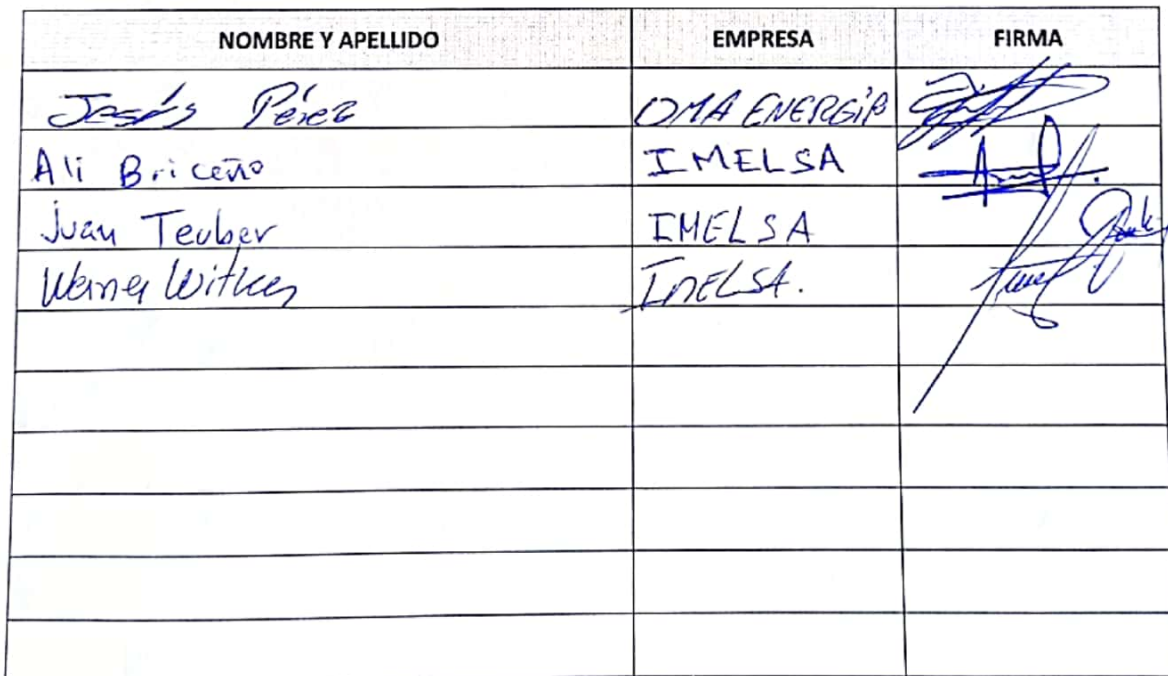 NOMBRE Y APELLIDO EMPRESA FIRMA
Jesús Pérez OMA ENERGIA
Ali Briceño IMELSA
Juan Teuber IMELSA
IMELSA.